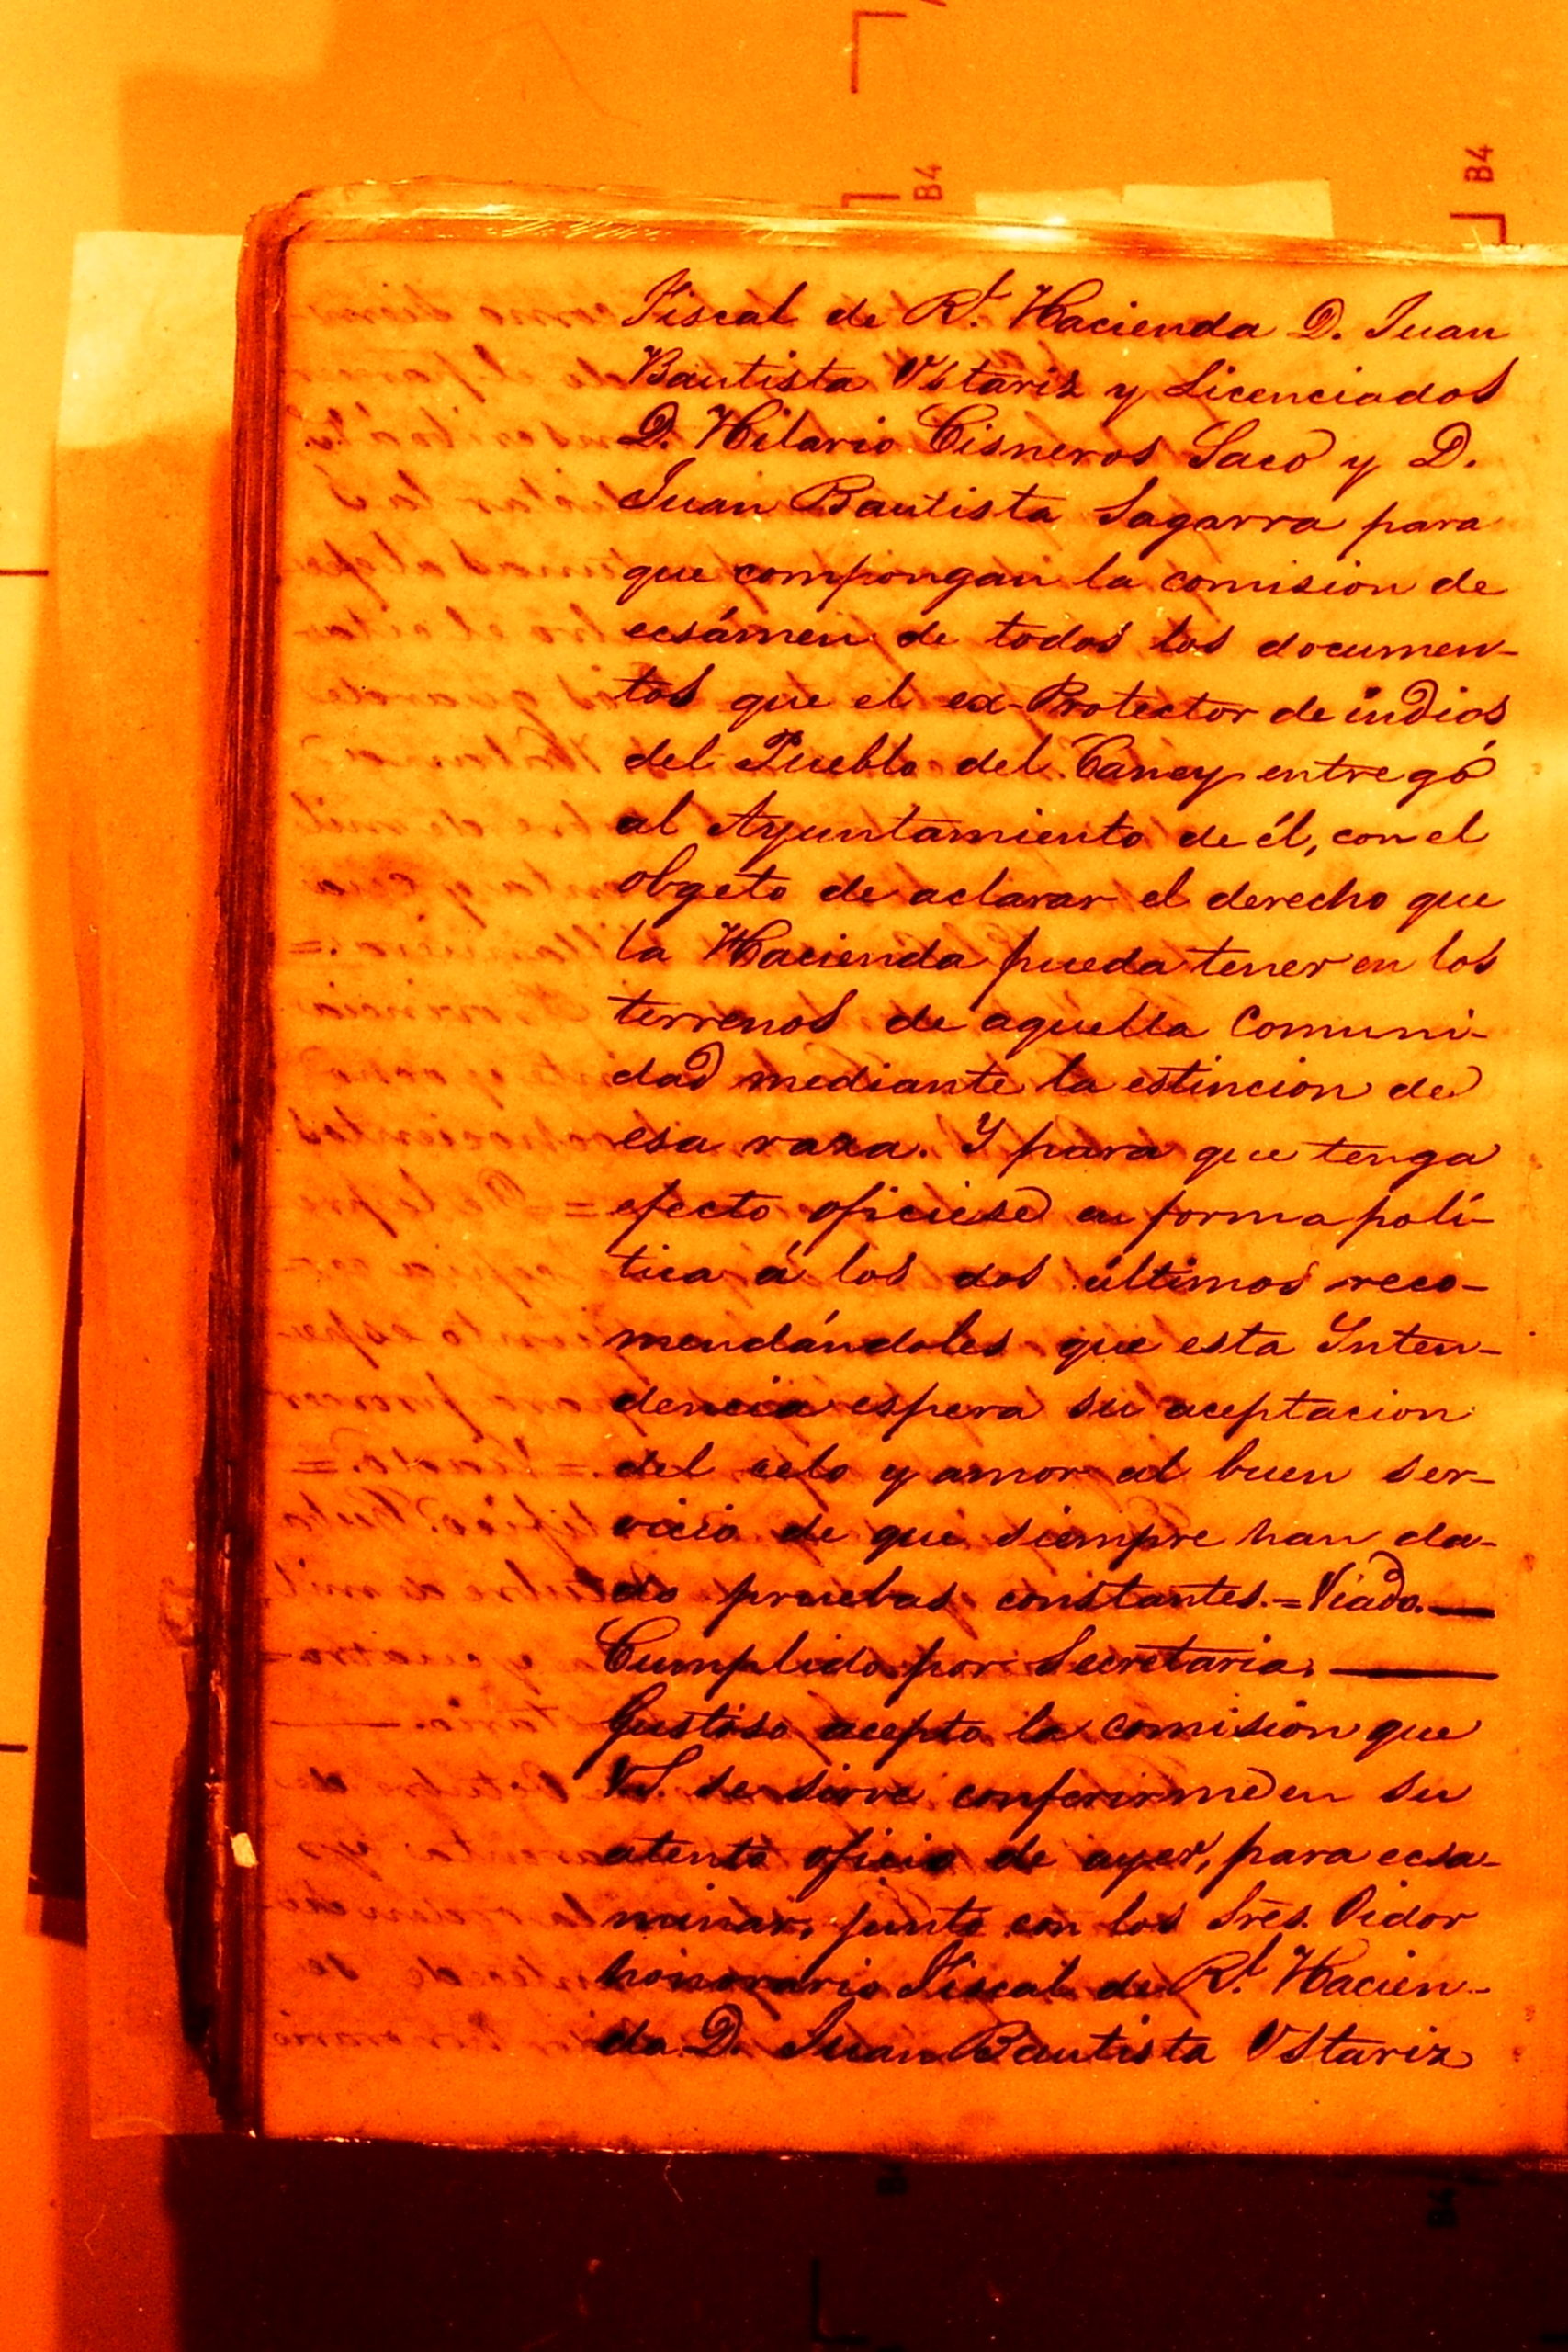 B4
B4
Fiscal de Rl. Hacienda D. Juan
Bautista Ustariz y Licenciados
D. Hilario Cisneros Saco y D.
Juan Bautista Sagarra para
que compongan la comision de
ecsámen de todos los documen-
tos que el ex-Protector de indios
del Pueblo del Caney entregó
al Ayuntamiento de él, con el
obgeto de aclarar el derecho que
la Hacienda pueda tener en los
terrenos de aquella Comuni-
dad mediante la estincion de
esa raza. Y para que tenga
efecto oficiese en forma polí-
tica á los dos últimos reco-
mendándoles que esta Inten-
dencia espera su aceptacion
del celo y amor al buen ser-
vicio de que siempre han da-
do pruebas constantes.=Viado.—
Cumplido por Secretaria. —
Gustoso acepto la comision que
V.S. se sirve conferirme en su
atento oficio de ayer, para ecsa-
minar, junto con los Sres. Oidor
honorario Fiscal de Rl. Hacien-
da D. Juan Bautista Ustariz